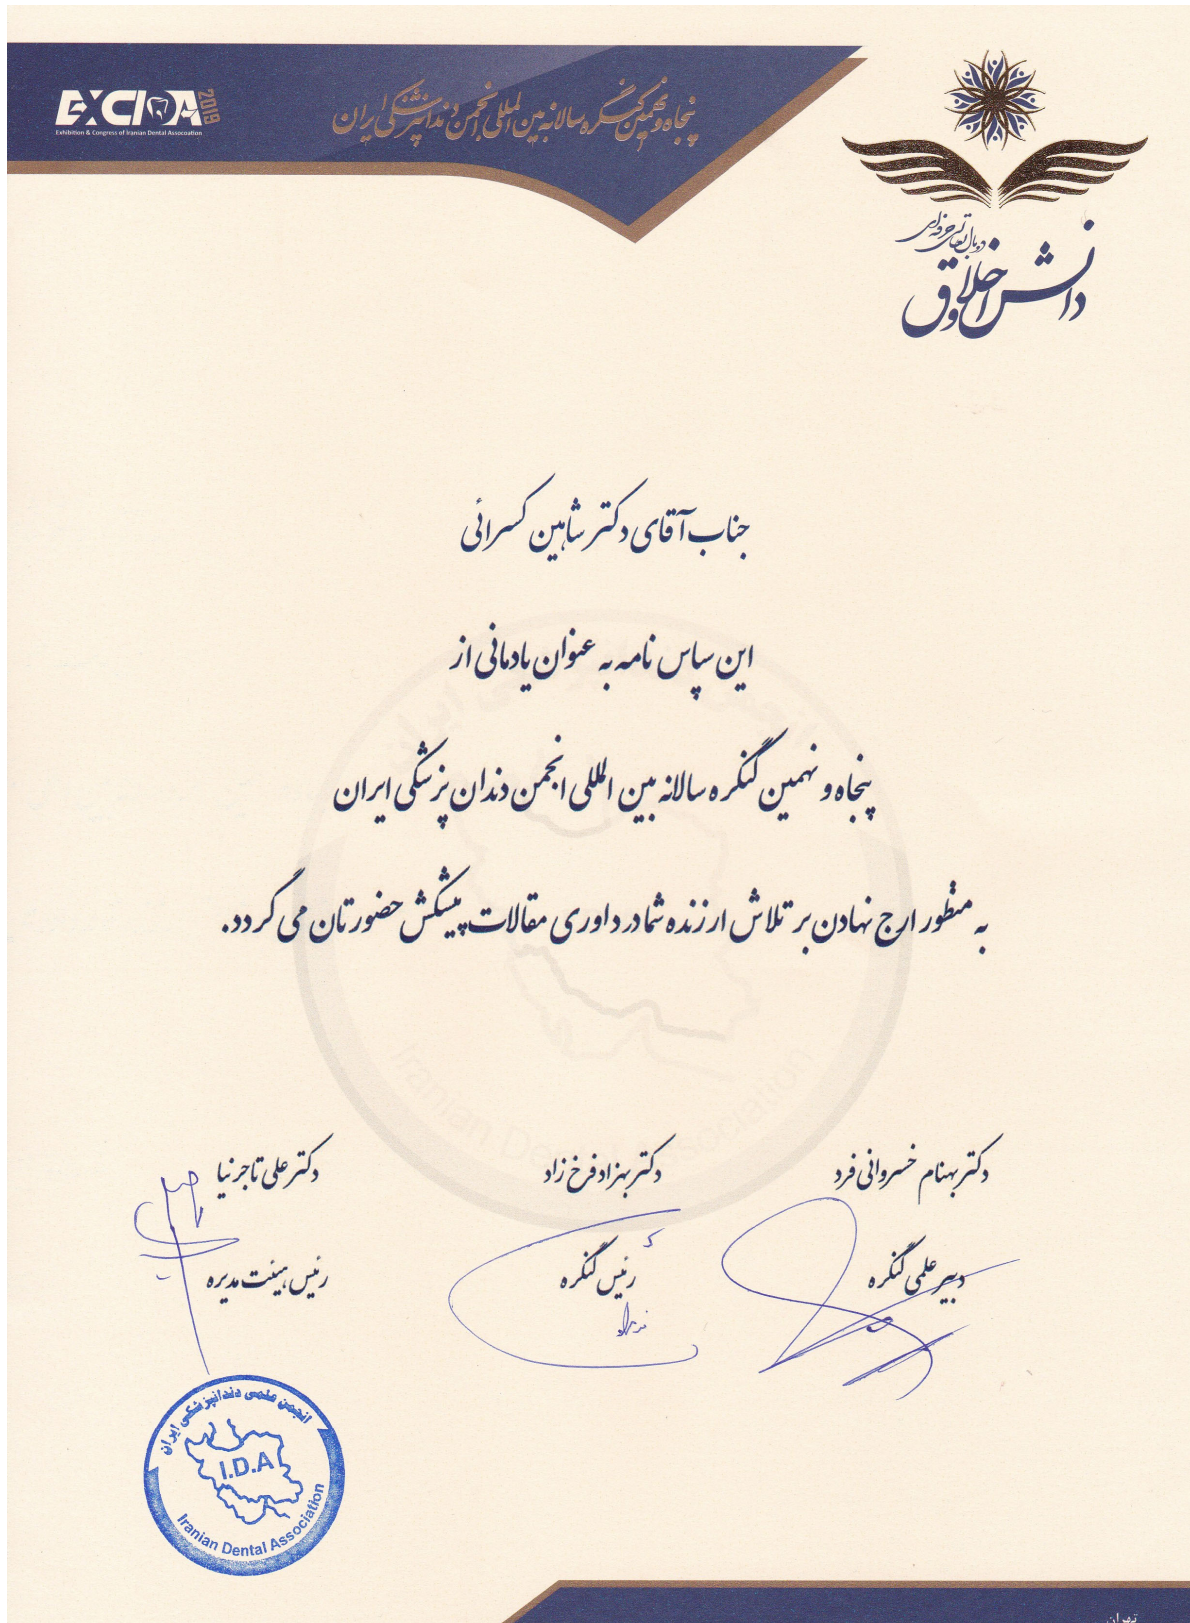 EXCIDA 2019
Exhibition & Congress of Iranian Dental Assocoation
پنجاه و نهمین کنگره سالانه بین المللی انجمن دندانپزشکی ایران
دو بال تعالی حرفه ای
دانش و اخلاق
جناب آقای دکتر شاهین کسرائی
این سپاس نامه به عنوان یادمانی از
پنجاه و نهمین کنگره سالانه بین المللی انجمن دندان پزشکی ایران
به منظور ارج نهادن بر تلاش ارزنده شما در داوری مقالات پیشکش حضورتان می گردد.
دکتر بهنام خسروانی فرد
دکتر بهزاد فرخ زاد
دکتر علی تاجرنیا
دبیر علمی کنگره
رئیس کنگره
رئیس هیئت مدیره
انجمن علمی دندانپزشکی ایران
I.D.A
Iranian Dental Association
Iranian Dental Association
تهران